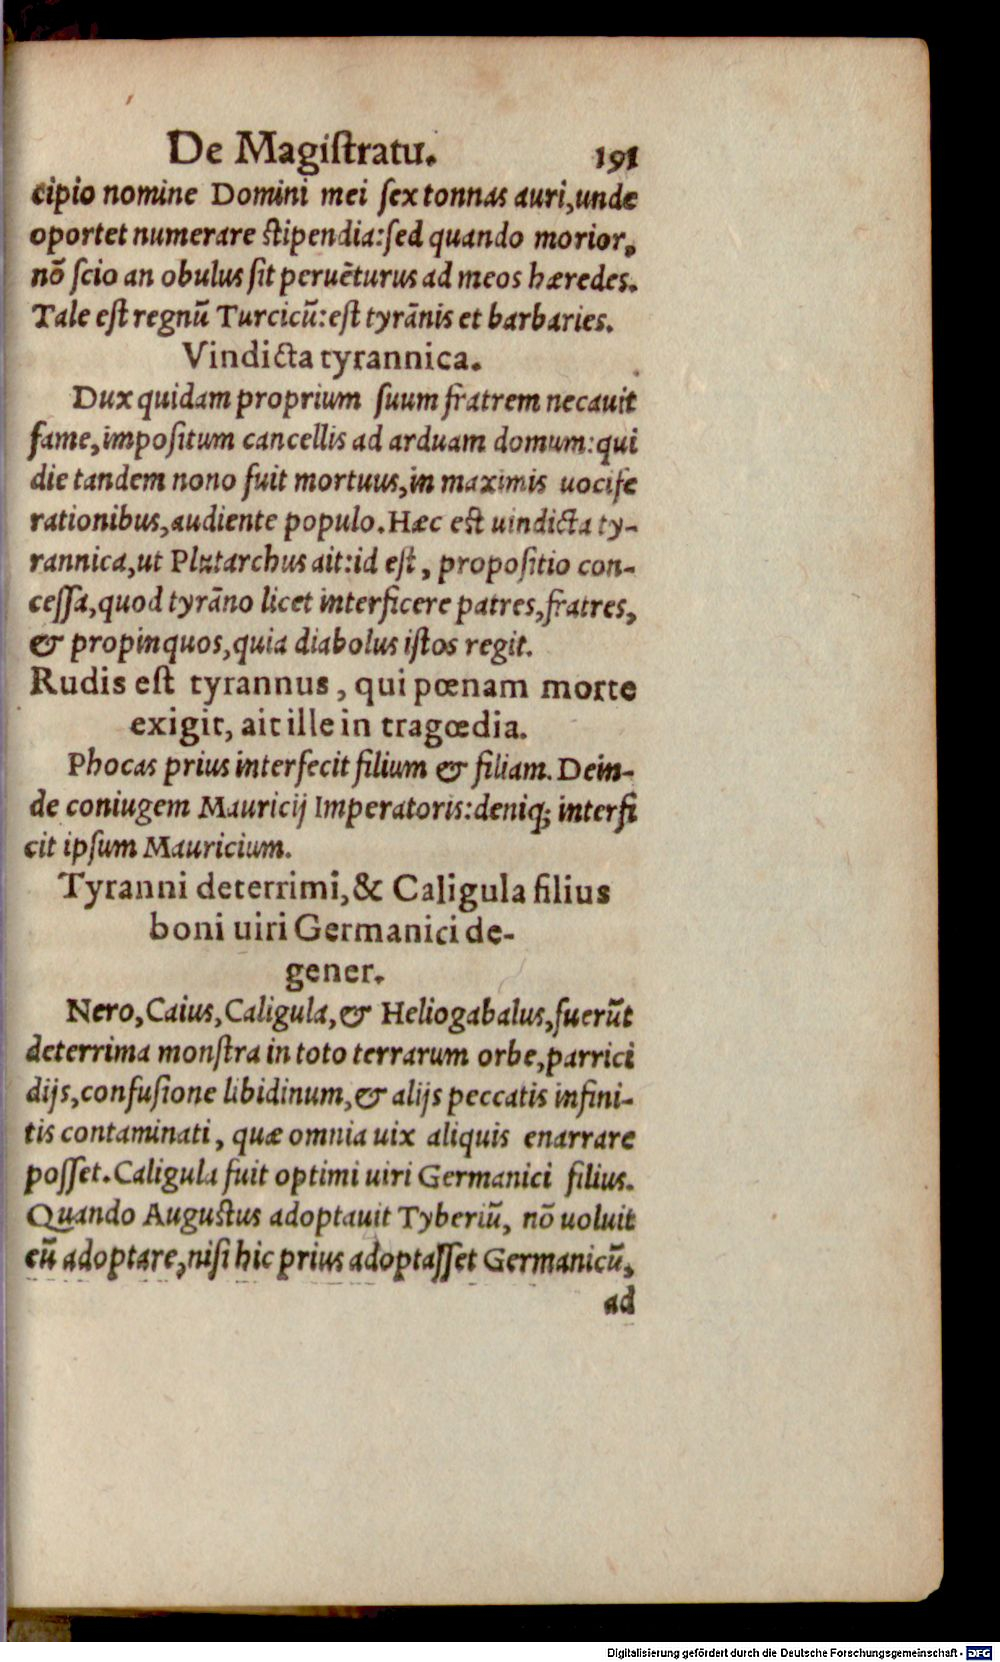 De Magiſtratu. 191
cipio nomine Domini mei ſex tonnas auri,unde
oportet numerare ſtipendia:ſed quando morior,
nõ ſcio an obulus ſit peruẽturus ad meos hæredes.
Tale eſt regnũ Turcicũ:eſt tyrãnis et barbaries.
Vindicta tyrannica.
Dux quidam proprium ſuum fratrem necauit
fame,impoſitum cancellis ad arduam domum:qui
die tandem nono fuit mortuus,in maximis uocife
rationibus,audiente populo.Hæc eſt uindicta ty-
rannica,ut Plutarchus ait:id eſt, propoſitio con-
ceſſa,quod tyrãno licet interficere patres,fratres,
& propinquos,quia diabolus iſtos regit.
Rudis eſt tyrannus, qui pœnam morte
exigit, ait ille in tragœdia.
Phocas prius interfecit filium & filiam. Dein-
de coniugem Mauricij Imperatoris:deniq; interfi
cit ipſum Mauricium.
Tyranni deterrimi,& Caligula filius
boni uiri Germanici de-
gener.
Nero,Caius,Caligula,& Heliogabalus,fuerũt
deterrima monſtra in toto terrarum orbe,parrici
dijs,confuſione libidinum,& alijs peccatis infini-
tis contaminati, quæ omnia uix aliquis enarrare
poſſet.Caligula fuit optimi uiri Germanici filius.
Quando Auguſtus adoptauit Tyberiũ, nõ uoluit
eũ adoptare,niſi hic prius adoptaſſet Germanicũ,
ad
Digitalisierung gefördert durch die Deutsche Forschungsgemeinschaft - DFG